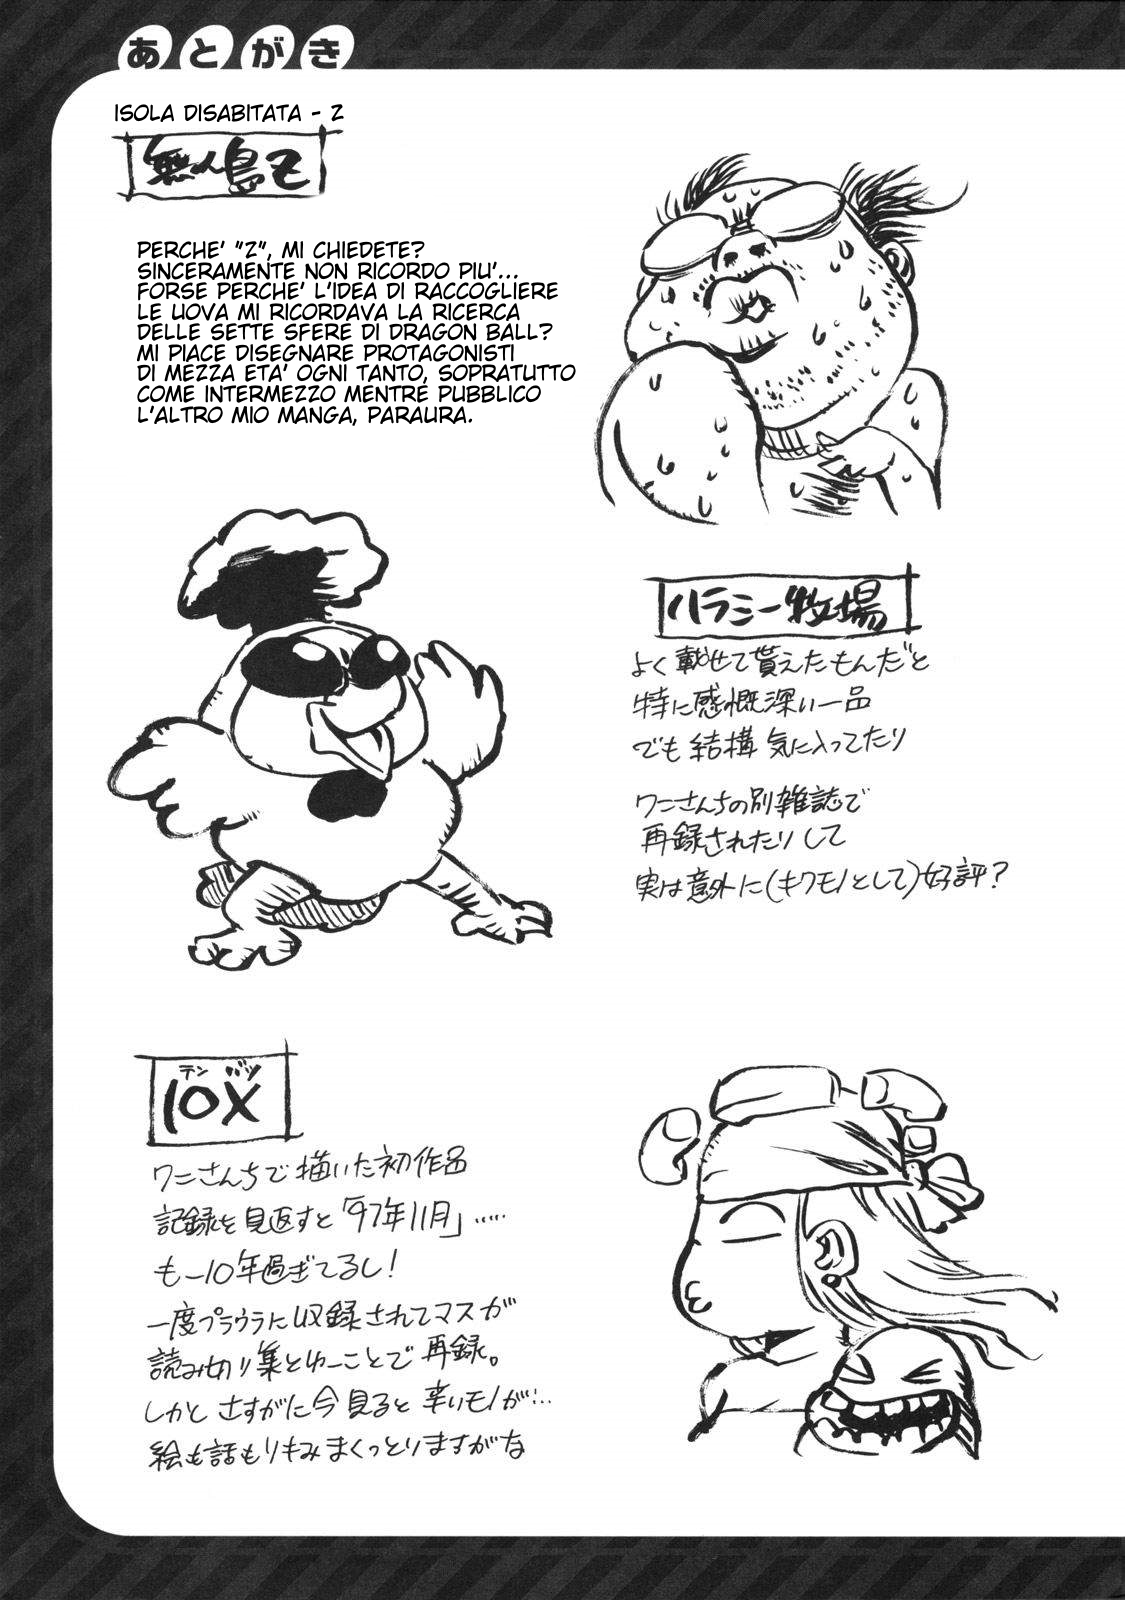 あとがき
ISOLA DISABITATA - Z
無人島Z
PERCHE' "Z", MI CHIEDETE?
SINCERAMENTE NON RICORDO PIU'...
FORSE PERCHE' L'IDEA DI RACCOGLIERE
LE UOVA MI RICORDAVA LA RICERCA
DELLE SETTE SFERE DI DRAGON BALL?
MI PIACE DISEGNARE PROTAGONISTI
DI MEZZA ETA' OGNI TANTO, SOPRATUTTO
COME INTERMEZZO MENTRE PUBBLICO
L'ALTRO MIO MANGA, PARAURA.
ハラミー牧場
よく載せて貰えたもんだと
特に感慨深い一品
でも結構気に入ってたり
ワニさんちの別雑誌で
再録されたりして
実は意外に(キワモノとして)好評？
テン バツ
10X
ワニさんちで描いた初作品
記録を見返すと「97年11月」……
もー10年過ぎてるし！
一度プラウラに収録されてマスが
読み切り集とゆーことで再録。
しかしさすがに今見ると辛いモノが…
絵も話もリキみまくっとりますがな